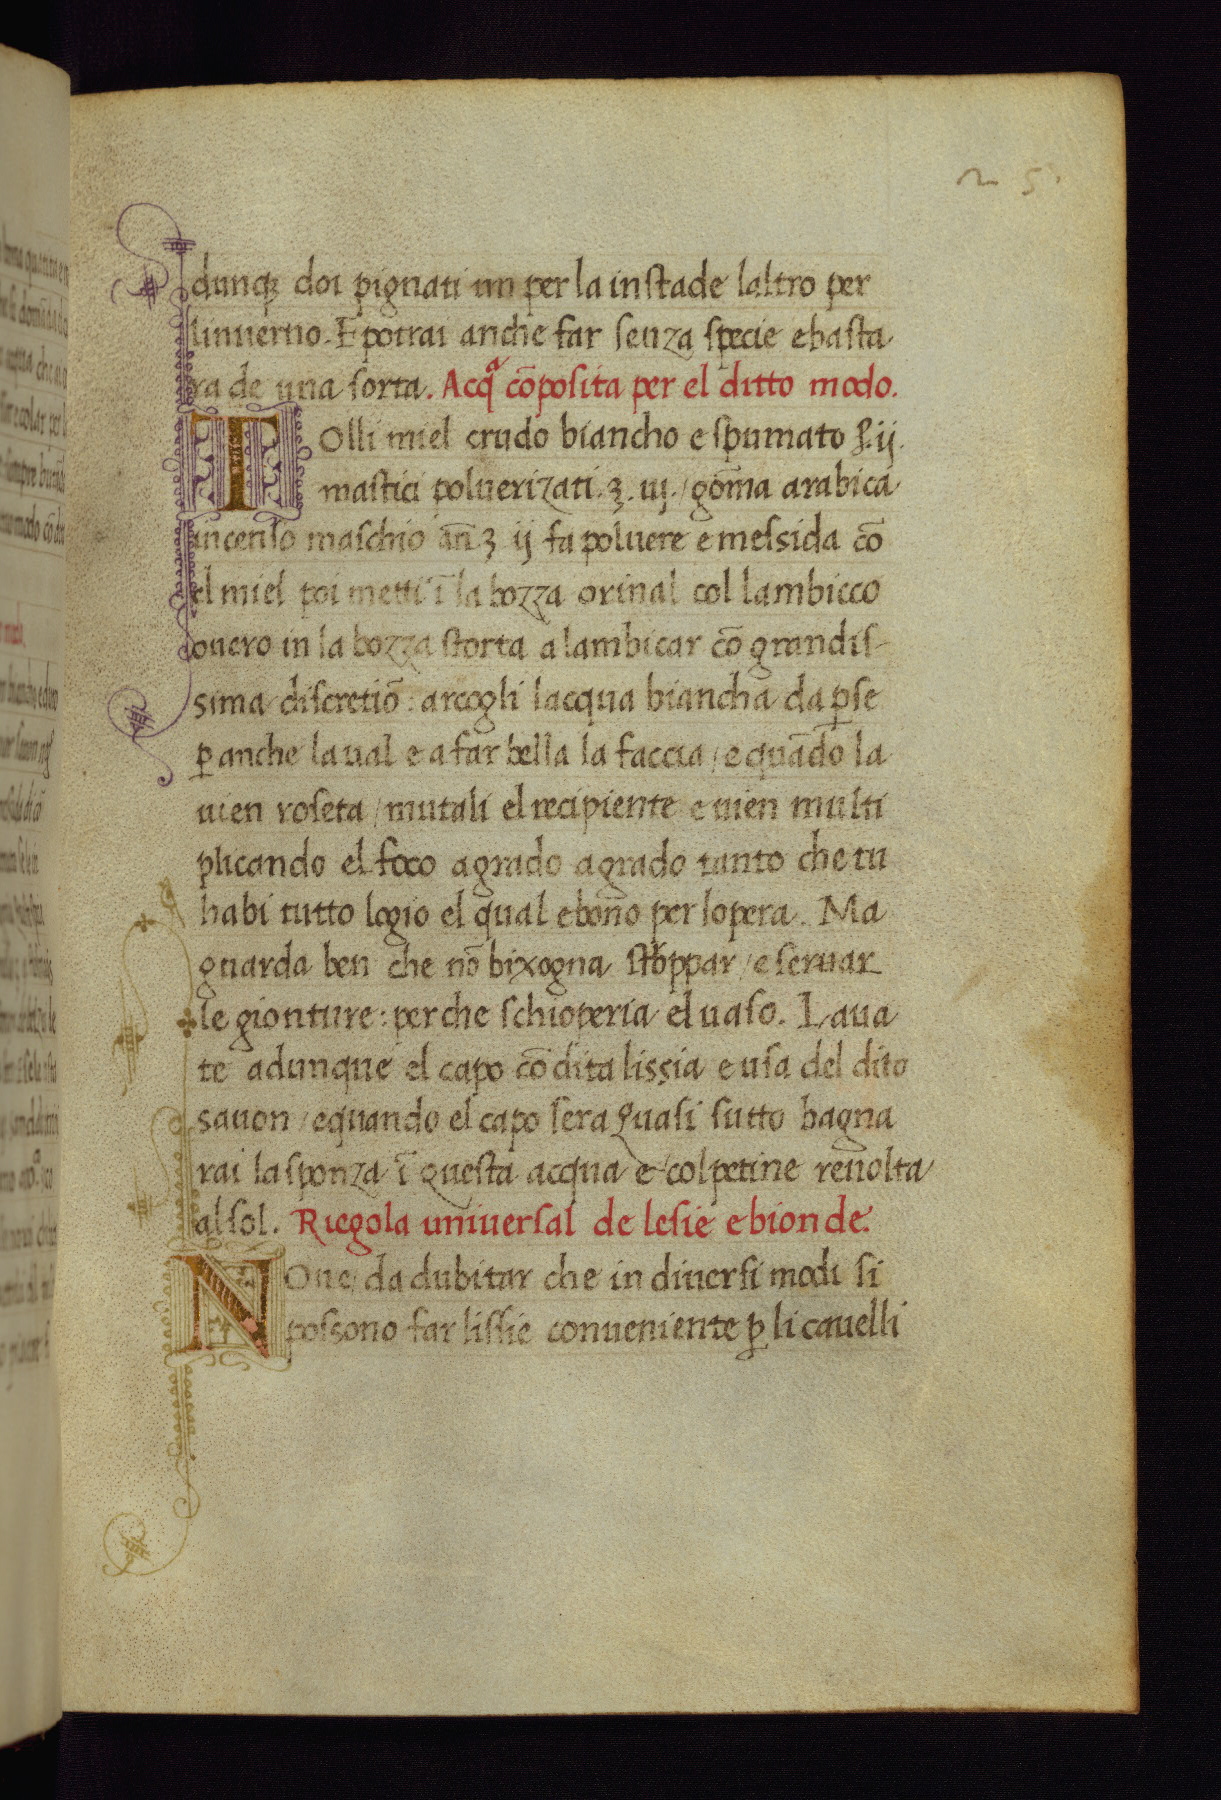 25.
dunqꝫ doi pignati un per la instade laltro per
linuerno. E potrai anche far senza specie e basta
ra de una sorta. Acqª cōposita per el ditto modo.
TOlli miel crudo biancho e spumato ij.
mastici poluerizati. ʒ. iij. / gōma arabica
incenso maschio añ. ʒ ij fa poluere e messida cō
el miel poi metti ī la bozza orinal col lambicco
ouero in la bozza storta a lambicar cō grandis-
sima discretiō: arcogli lacqua biancha da ꝑ se
ꝑ anche la ual e a far bella la faccia / e quādo la
uien roseta / mutali el recipiente e uien multi
plicando el foco a grado a grado tanto che tu
habi tutto logio el qual e bono per lopera. Ma
guarda ben che nō bixogna stroppar / e seruar
le gionture: perche schioperia el uaso. Laua
te adunque el capo cō dita lissia e usa del dito
sauon / e quando el capo sera quasi sutto bagna
rai la sponza ī questa acqua e col petine reuolta
al sol. Riegola uniuersal de lesie e bionde.
NOn e da dubitar che in diuersi modi si
possono far lissie conueniente ꝑ li cauelli